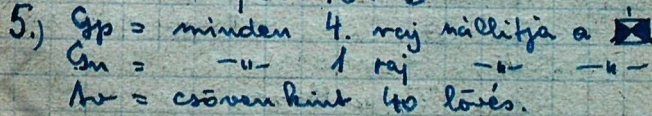 5.) Gp = minden 4. raj szállitja a
Gn = -„- 1 raj -„- -„-
Av = csövenkint 40 lövés.